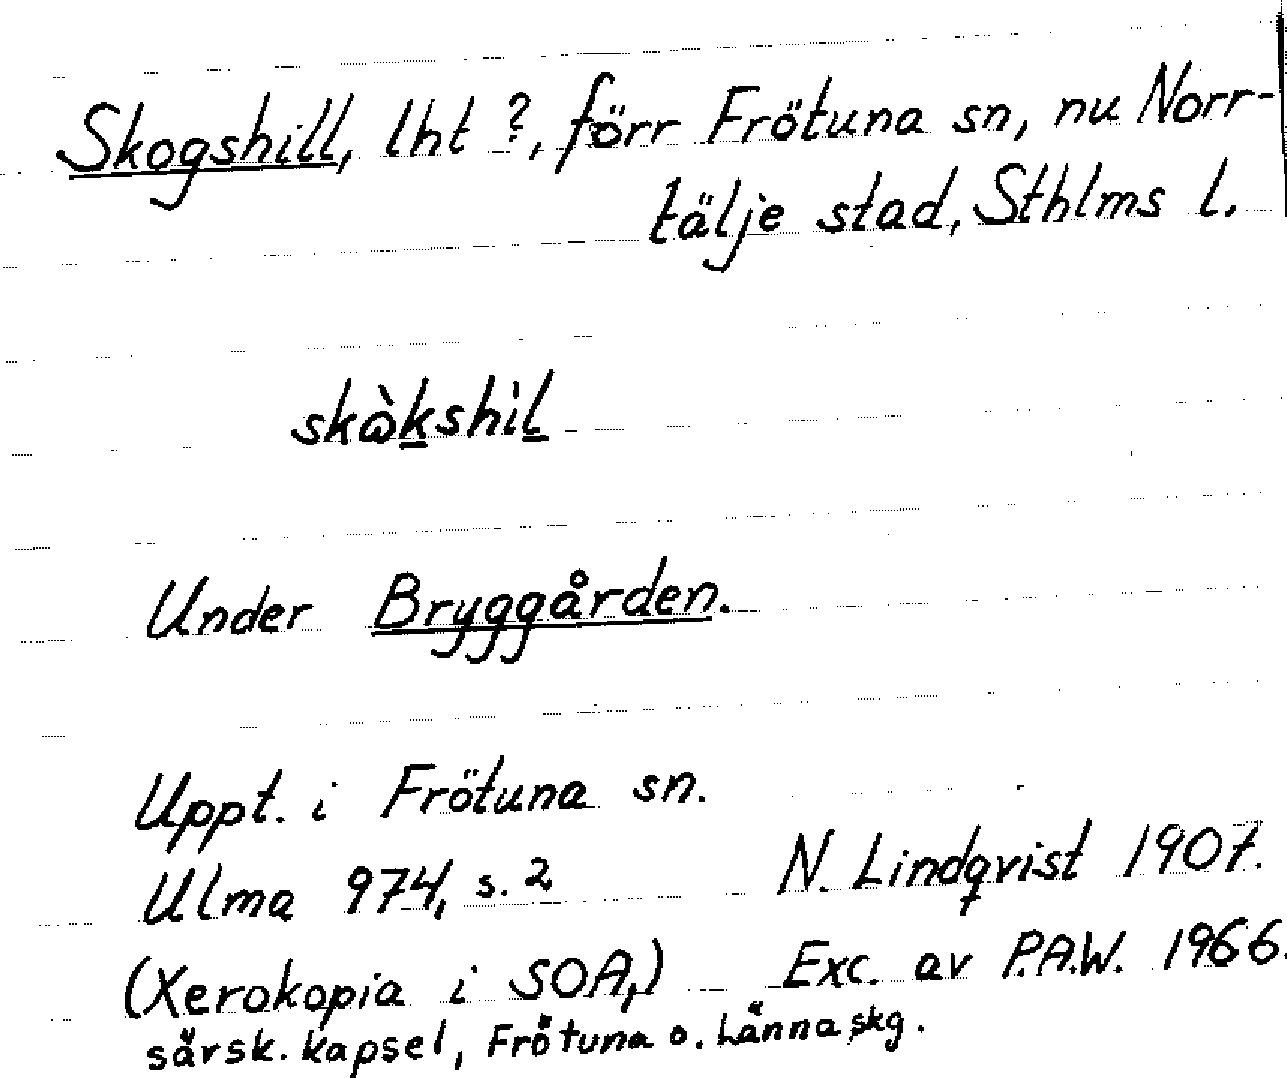 Skogshill, lht ?, förr Frötuna sn, nu Norr-
tälje stad, Sthlms l.
skὼkshìl
Under Bryggården.
Uppt. i Frötuna sn.
Ulma 974, s. 2 N. Lindqvist 1907.
(Xerokopia i SOA,) Exc. av P.A.W. 1966.
särsk. kapsel, Frötuna o. Länna skg.